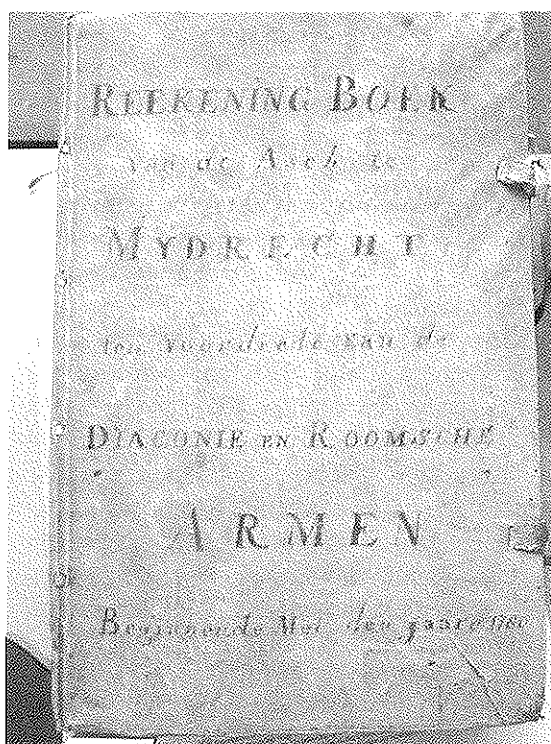 REEKENING BOEK
van de Asch te
MYDRECHT
ten voordeele van de
DIACONIE EN ROOMSCHE
ARMEN
Beginnende Met den jaare